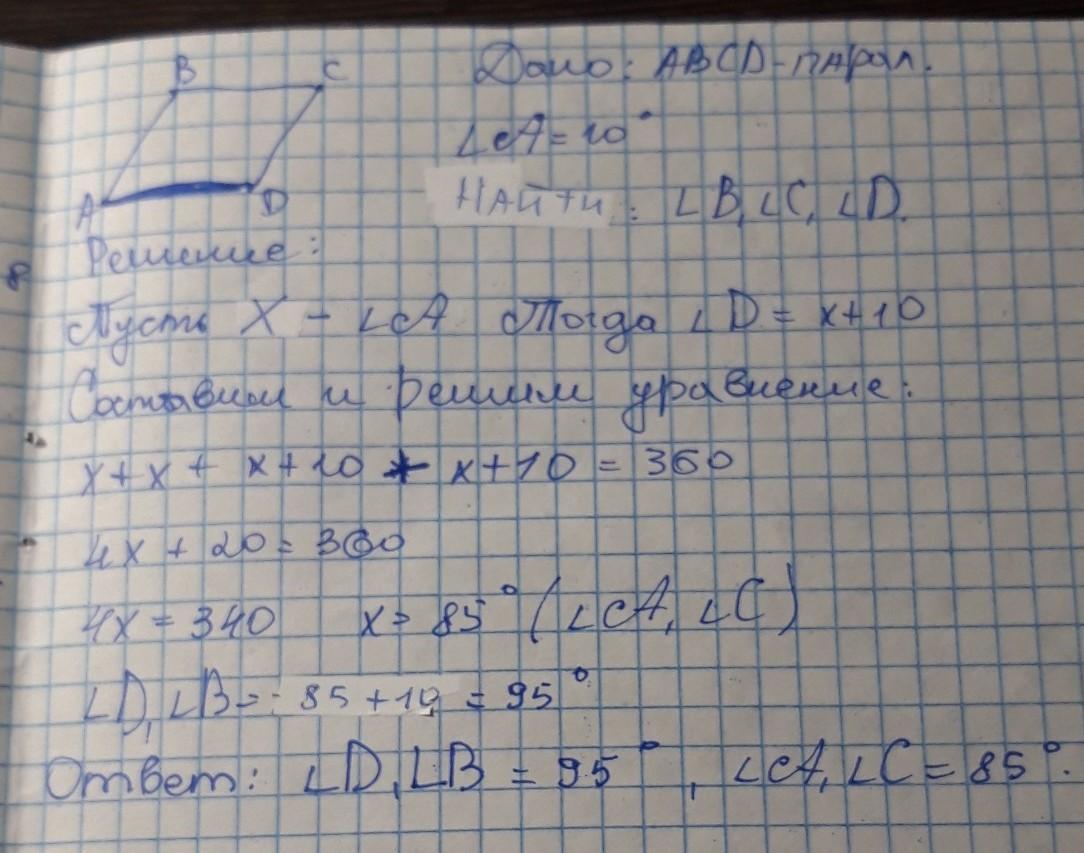 B C
Дано: ABCD-парал.
∠A=10°
A D
Найти: ∠B, ∠C, ∠D.
Решение:
8
Пусть X - ∠A Тогда ∠D = x+10
Составим и решим уравнение:
x+x+ x+10 + x+10 = 360
4x + 20 = 360
4x = 340 x = 85° (∠A, ∠C)
∠D, ∠B = 85+10 = 95°
Ответ: ∠D, ∠B = 95°, ∠A, ∠C = 85°.